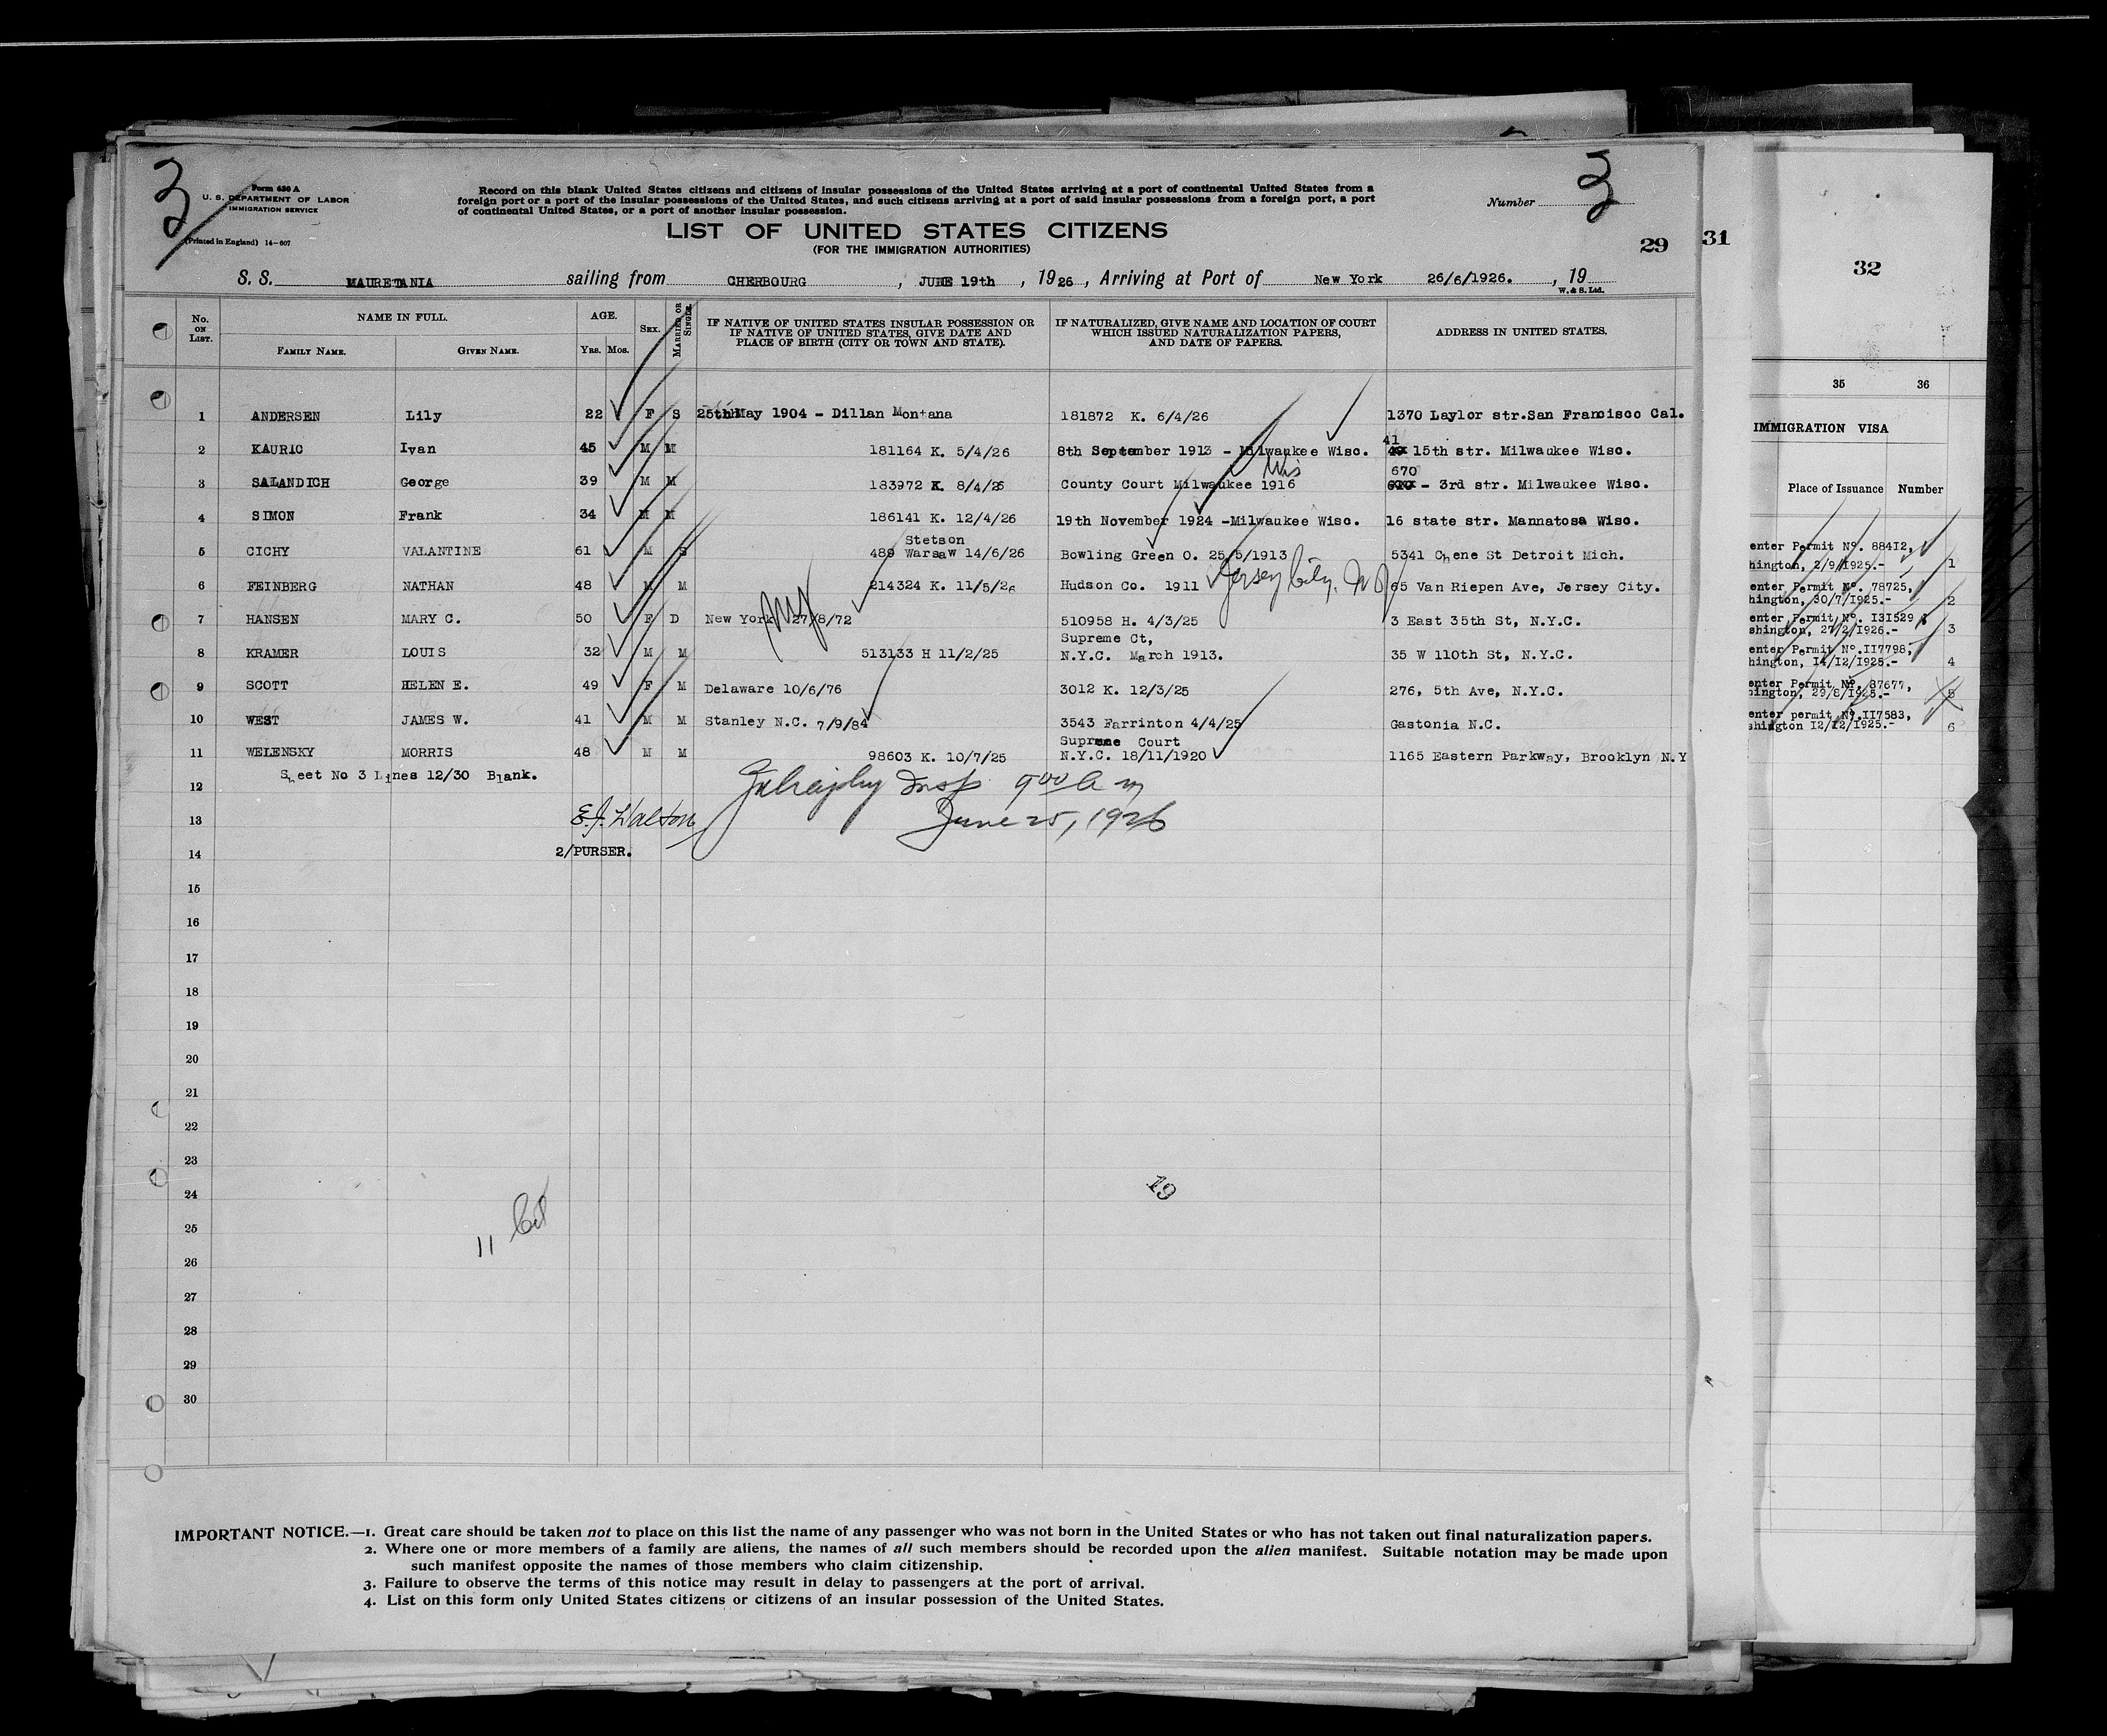 3
3
Form 630 A
U. S. DEPARTMENT OF LABOR
IMMIGRATION SERVICE
(Printed in England) 14-607
Record on this blank United States citizens and citizens of insular possessions of the United States arriving at a port of continental United States from a
foreign port or a port of the insular possessions of the United States, and such citizens arriving at a port of said insular possessions from a foreign port, a port
of continental United States, or a port of another insular possession.
Number
LIST OF UNITED STATES CITIZENS
(FOR THE IMMIGRATION AUTHORITIES)
29
31
32
S. S. MAURETANIA sailing from CHERBOURG, JUNE 19th, 1926, Arriving at Port of New York 26/6/1926., 19
W. & S. Ltd.
No. ON LIST. NAME IN FULL. AGE. SEX. MARRIED OR SINGLE.
FAMILY NAME. GIVEN NAME. YRS. MOS.
IF NATIVE OF UNITED STATES INSULAR POSSESSION OR
IF NATIVE OF UNITED STATES, GIVE DATE AND
PLACE OF BIRTH (CITY OR TOWN AND STATE).
IF NATURALIZED, GIVE NAME AND LOCATION OF COURT
WHICH ISSUED NATURALIZATION PAPERS,
AND DATE OF PAPERS.
ADDRESS IN UNITED STATES.
1 ANDERSEN Lily 22 F S 25th May 1904 - Dillan Montana 181872 K. 6/4/26 1370 Laylor str.San Francisco Cal.
2 KAURIC Ivan 45 M M 181164 K. 5/4/26 8th September 1913 - Milwaukee Wisc. 41 15th str. Milwaukee Wisc.
Wis
3 SALANDICH George 39 M M 183972 K. 8/4/26 County Court Milwaukee 1916 670 - 3rd str. Milwaukee Wisc.
4 SIMON Frank 34 M M 186141 K. 12/4/26 19th November 1924 -Milwaukee Wisc. 16 state str. Mannatosa Wisc.
Stetson
5 CICHY VALANTINE 61 M S 489 Warsaw 14/6/26 Bowling Green O. 25/5/1913 5341 Chene St Detroit Mich.
6 FEINBERG NATHAN 48 M M 214324 K. 11/5/26 Hudson Co. 1911 Jersey City, N J 65 Van Riepen Ave, Jersey City.
7 HANSEN MARY C. 50 F D New York NY 27/8/72 510958 H. 4/3/25 3 East 35th St, N.Y.C.
Supreme Ct,
8 KRAMER LOUIS 32 M M 513133 H 11/2/25 N.Y.C. March 1913. 35 W 110th St, N.Y.C.
9 SCOTT HELEN E. 49 F M Delaware 10/6/76 3012 K. 12/3/25 276, 5th Ave, N.Y.C.
10 WEST JAMES W. 41 M M Stanley N.C. 7/9/84 3543 Farrinton 4/4/25 Gastonia N.C.
Supreme Court
11 WELENSKY MORRIS 48 M M 98603 K. 10/7/25 N.Y.C. 18/11/1920 1165 Eastern Parkway, Brooklyn N.Y
Sheet No 3 Lines 12/30 Blank.
12
Insp 9 00 a m
13 E.J. Walson June 25, 1926
14 2/PURSER.
15
16
17
18
19
20
21
22
23
24
19
25
11
26
27
28
29
30
IMPORTANT NOTICE.—1. Great care should be taken not to place on this list the name of any passenger who was not born in the United States or who has not taken out final naturalization papers.
2. Where one or more members of a family are aliens, the names of all such members should be recorded upon the alien manifest. Suitable notation may be made upon
such manifest opposite the names of those members who claim citizenship.
3. Failure to observe the terms of this notice may result in delay to passengers at the port of arrival.
4. List on this form only United States citizens or citizens of an insular possession of the United States.
35 36
IMMIGRATION VISA
Place of Issuance Number
enter Permit Nº. 88412,
hington, 2/9/1925.- 1
enter Permit Nº. 78725,
hington, 30/7/1925.- 2
enter Permit Nº. 131529
shington, 27/2/1926.- 3
enter Permit Nº.117798,
hington, 14/12/1925.- 4
enter Permit Nº. 87677,
hington, 29/8/1925.- 5
enter permit Nº.117583,
shington 12/12/1925.- 6